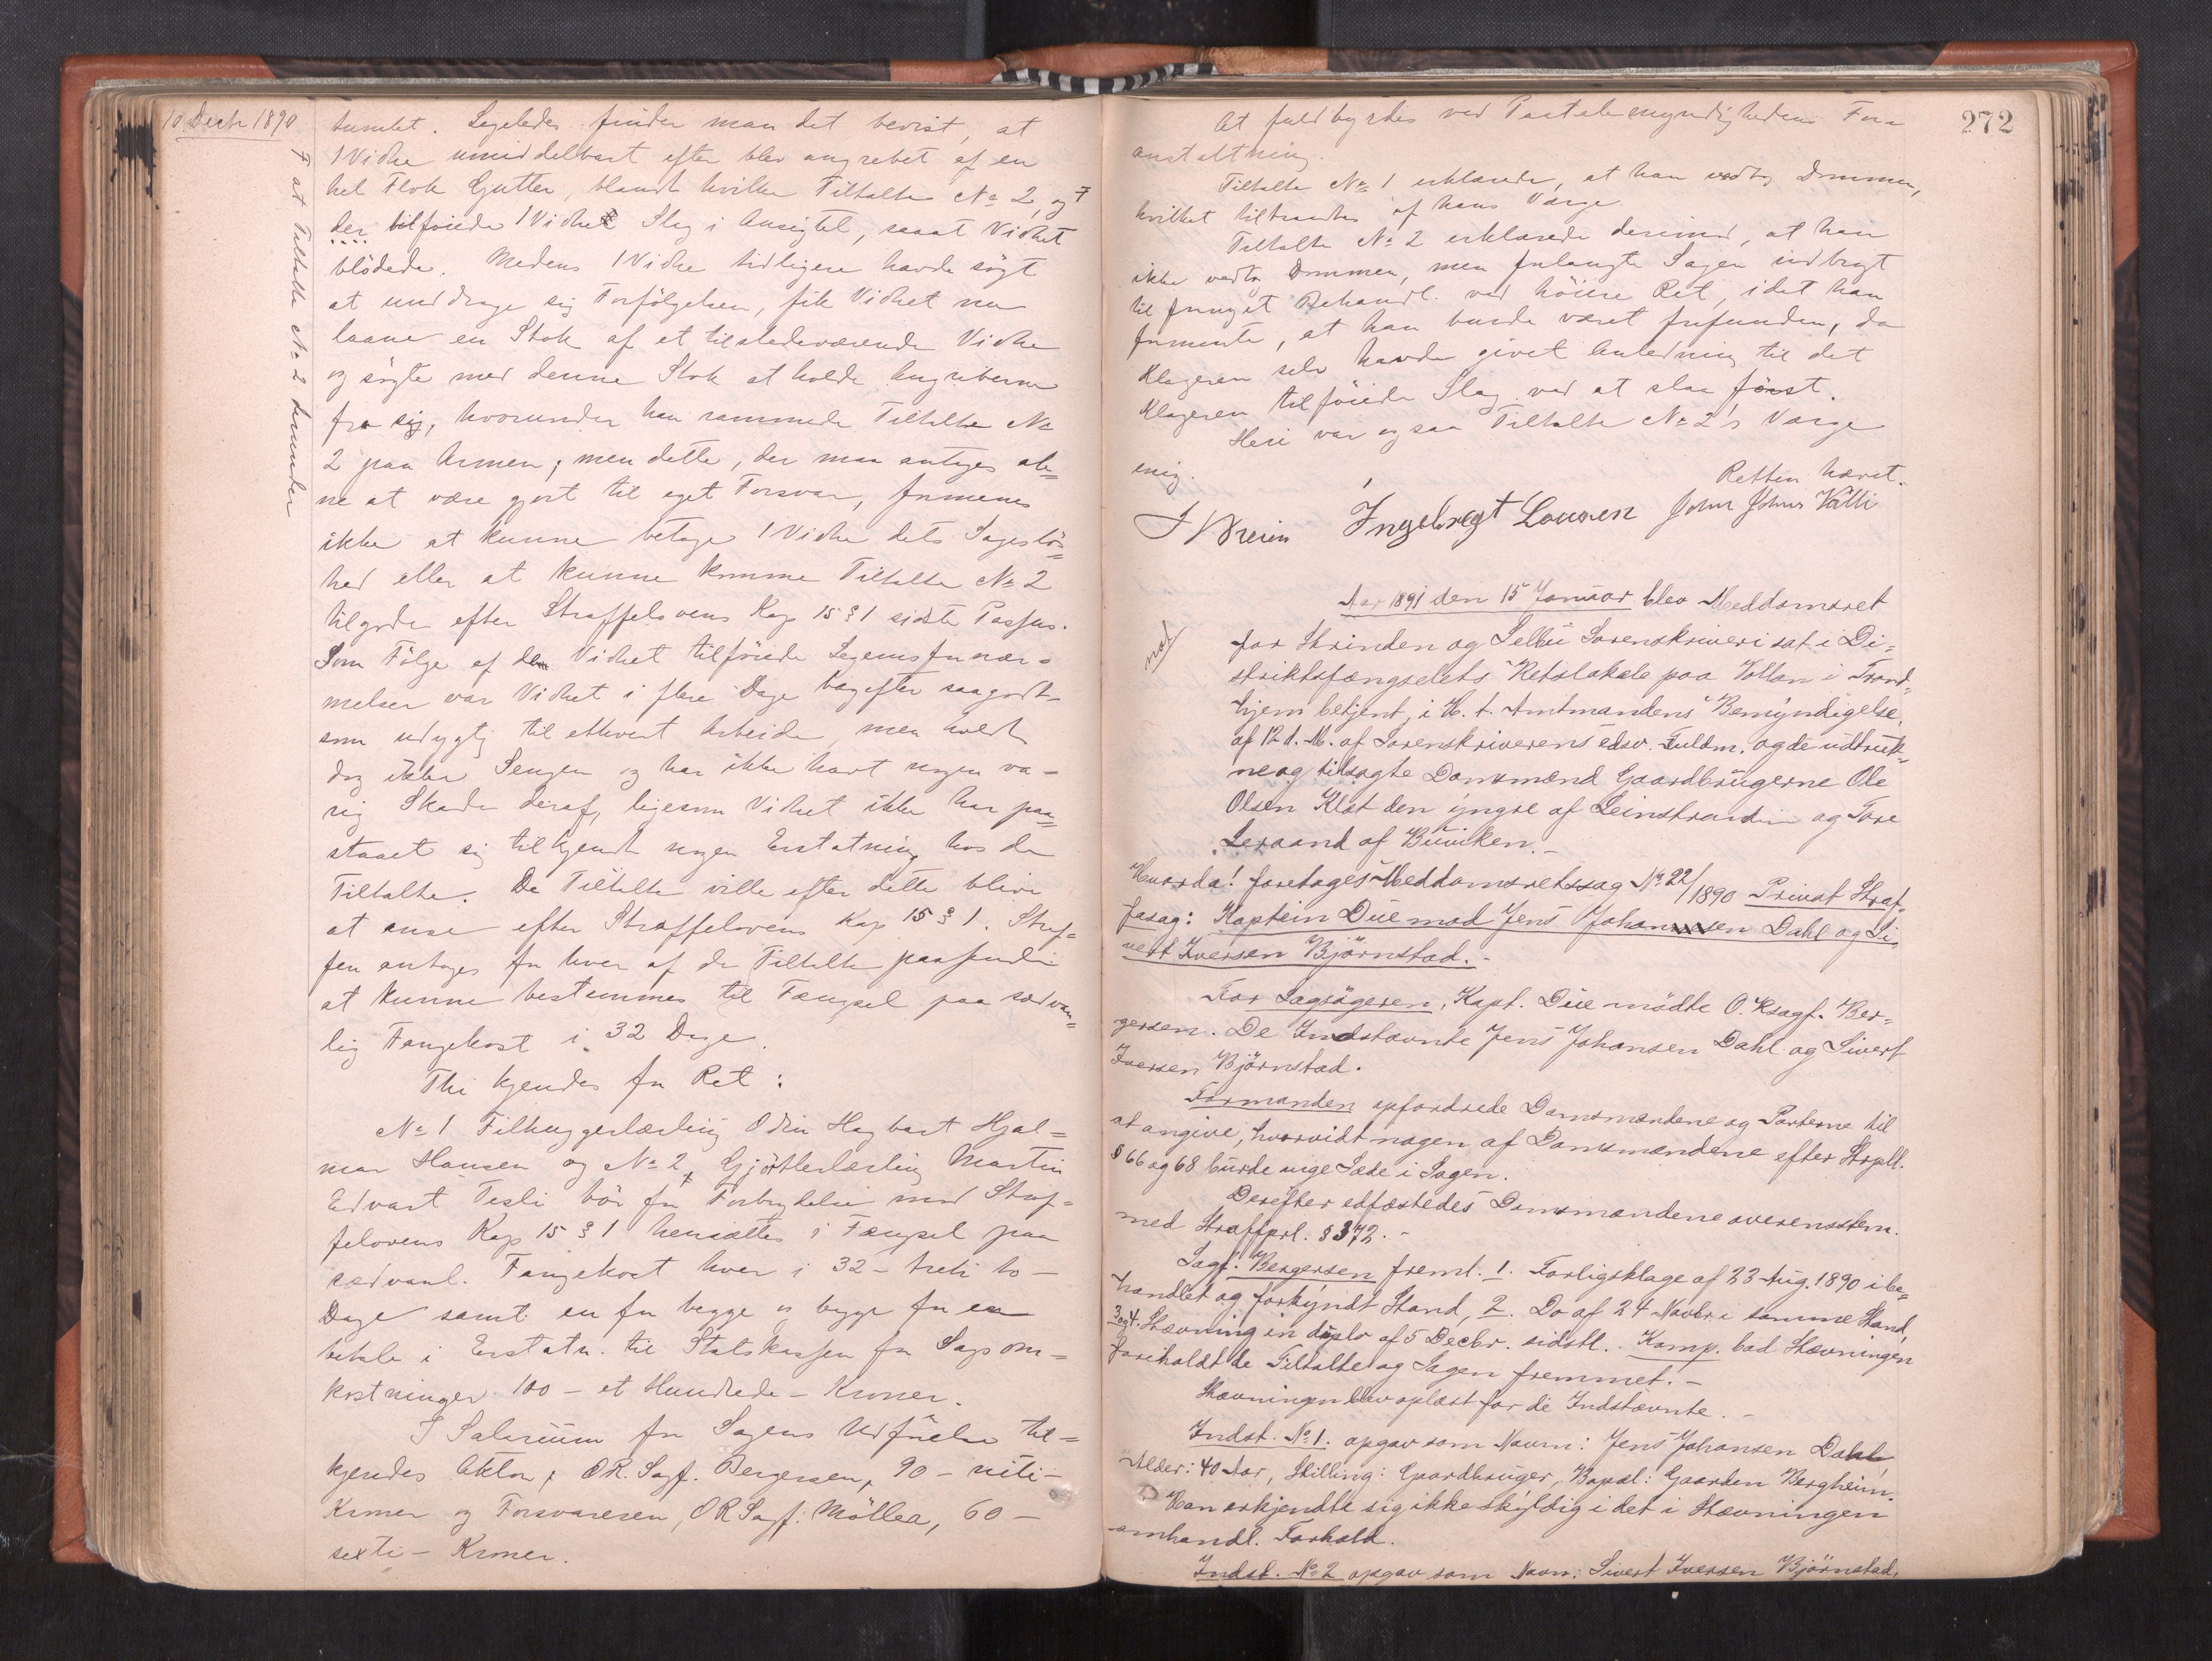 10 Decbr 1890
tumlet. Ligeledes finder man det bevist, at
1 Vidne umiddelbart efter blev angrebet af en
hel Flok Gutter, blandt hvilke Tiltalte No 2, og F
der tilføiede 1 Vidne Slag i Ansigtet, saaat Vidnet
blödede. Medens 1 Vidne tidligere havde sögt
at unddrage sig Forfölgelsen, fik Vidnet nu
laane en Stok af et tilstedeværende Vidne
og sögte med denne Stok at holde Angriberne
fra sig, hvorunder han rammede Tiltalte No
2 paa Armen; men dette, der maa antages ale=
ne at være gjort til eget Forsvar, formenes
ikke at kunne betage 1 Vidne dets Sageslös=
hed eller at kunne komme Tiltalte No 2
tilgode efter Straffelovens Kap 15 § 1 sidste Passus.
Som Fölge af den Vidnet tilföiede Legemsfornær=
melser var Vidnet i flere Dage bagefter saagodt=
som udygtig til ethvert Arbeide, men holdt
dog ikke Sengen og har ikke havt nogen va=
rig Skade deraf, ligesom Vidnet ikke har paa=
staaet sig tilkjendt nogen Erstatning hos de
Tiltalte. De Tiltalte ville efter dette blive
at anse efter Straffelovens Kap 15 § 1. Straf=
fen antages for hver af de Tiltalte passende
at kunne bestemmes til Fængsel paa sædvan=
lig Fangekost i 32 Dage.
Thi kjendes for Ret:
No 1 Filhuggerlærling Odin Hagbart Hjal=
mar Hansen og No 2, Gjörtlerlærling Martin
Edvart Tesli bör for Forbrydelse mod Straf=
felovens Kap 15 § 1 hensættes i Fængsel paa
sædvanl. Fangekost hver i 32 - treti to -
Dage samt en for begge og begge for en
betale i Erstatn. til Statskassen for Sagsom=
kostninger 100 - et Hundrede - Kroner.
I Salarium for Sagens Udförelse til=
kjendes Aktor, O.R. Sagf. Bergersen, 90 - niti -
Kroner og Forsvareren, OR Sagf: Möller, 60 -
sexti - Kroner.
F at Tiltalte No 2 herunder
272
At fuldbyrdes ved Paatalemyndighedens For=
anstaltning.
Tiltalte No 1 erklærede, at han vedtog Dommen,
hvilket tiltraadtes af hans Værge.
Tiltalte No 2 erklærede derimod, at han
ikke vedtog Dommen, men forlangte Sagen indbragt
til fornyet Behandl. ved höiere Ret, idet han
formente, at han burde været frifunden, da
Klageren selv havde givet Anledning til det
Klageren tilföiede Slag ved at slaa först.
Heri var ogsaa Tiltalte No 2's Værge
enig.
Retten hævet.
Ingebregt Lousen John Johns Valli
Aar 1891 den 15 Januar blev Meddomsret
for Strinden og Selbu Sorenskriveri sat i Di=
striktsfængselets Retslokale paa Vollan i Trond=
hjem betjent, i H. t. Amtmandens Bemyndigelse,
af 12 d. M. af Sorenskriverens edsv. Fuldm. og de udtruk=
ne og tilsagte Domsmænd Gaardbrugerne Ole
Olsen Klæt den yngre af Leinstranden og Tore
Leraand af Buviken.-
Hvorda! foretoges Meddomsretssag No 22/1890 Privat Straf=
fesag: Kaptein Due mod Jens Johansen Dahl og Si=
vert Iversen Björnstad.-
For Sagsögeren, Kapt. Due mödte O. Rsagf. Ber=
gersen. De Indstævnte Jens Johansen Dahl og Sivert
Iversen Björnstad.
Formanden opfordrede Domsmændene og Parterne til
at angive, hvorvidt nogen af Domsmændene efter Strpll.
§ 66 og 68 burde vige Sæde i Sagen.
Derefter edfæstedes Domsmændene overensstem.
med Straffprl. § 372.-
Sagf. Bergersen freml. 1. Forligsklage af 23 Aug. 1890 i be=
handlet og forkyndt Stand, 2. Do af 24 Novbr. i samme Stand,
3 og 4. Stævning in duplo af 5 Decbr. sidstl. Komp. bad Stævningen
foreholdt de Tiltalte og Sagen fremmet.-
Stævningen blev oplæst for de Indstævnte.-
Indst. No 1. opgav som Navn: Jens Johansen Dahl,
Alder: 40 Aar, Stilling: Gaardbruger, Bopæl: Gaarden Bergheim.
Han erkjendte sig ikke skyldig i det i Stævningen
omhandl. Forhold.
Indst. No 2 opgav som Navn: Sivert Iversen Björnstad,